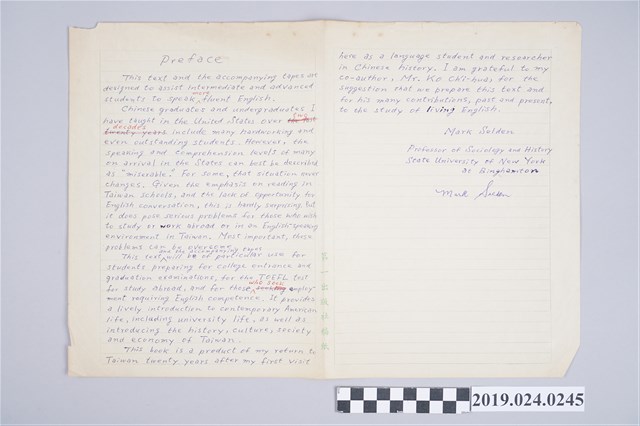 Preface
This text and the accompanying tapes are
designed to assist intermediate and advanced
students to speak more fluent English.
Chinese graduates and undergraduates I
have taught in the United States over the last two
twenty years decades include many hardworking and
even outstanding students. However, the
speaking and comprehension levels of many
on arrival in the States can best be described
as "miserable." For some, that situation never
changes. Given the emphasis on reading in
Taiwan schools, and the lack of opportunity for
English conversation, this is hardly surprising. But
it does pose serious problems for those who wish
to study or work abroad or in an English-speaking
environment in Taiwan. Most important, these
problems can be overcome.
This text and the accompanying tapes will be of particular use for
students preparing for college entrance and
graduation examinations, for the TOEFL test
for study abroad, and for those seeking who seek employ-
ment requiring English competence. It provides
a lively introduction to contemporary American
life, including university life, as well as
introducing the history, culture, society
and economy of Taiwan.
This book is a product of my return to
Taiwan twenty years after my first visit
here as a language student and researcher
in Chinese history. I am grateful to my
co-author, Mr. Ko Chi-hua, for the
suggestion that we prepare this text and
for his many contributions, past and present,
to the study of living English.
Mark Selden
Professor of Sociology and History
State University of New York
at Binghamton
Mark Selden
2019.024.0245